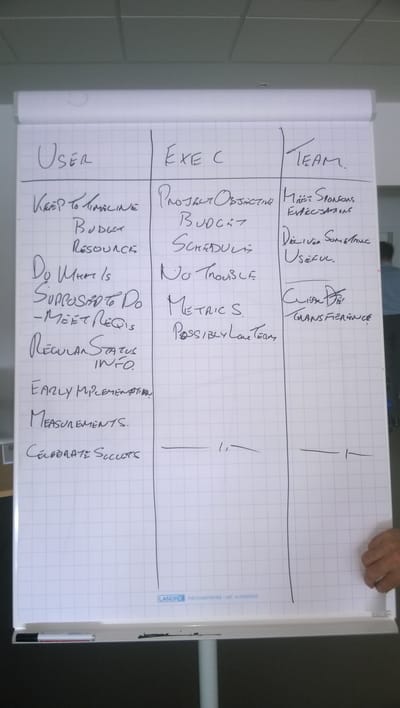 USER
KEEP TO TIMELINE
BUDGET
RESOURCE
DO WHAT IS
SUPPOSED TO DO
- MEET REQ'S
REGULAR STATUS
INFO.
EARLY IMPLEMENTATION
MEASUREMENTS.
CELEBRATE SUCCESS
EXEC
PROJECT OBJECTIVE
BUDGET
SCHEDULE
NO TROUBLE
METRICS
POSSIBLY LONG TERM
TEAM
MEET SPONSORS
EXPECTATIONS
DELIVER SOMETHING
USEFUL
CLEAN
TRANSFERENCE